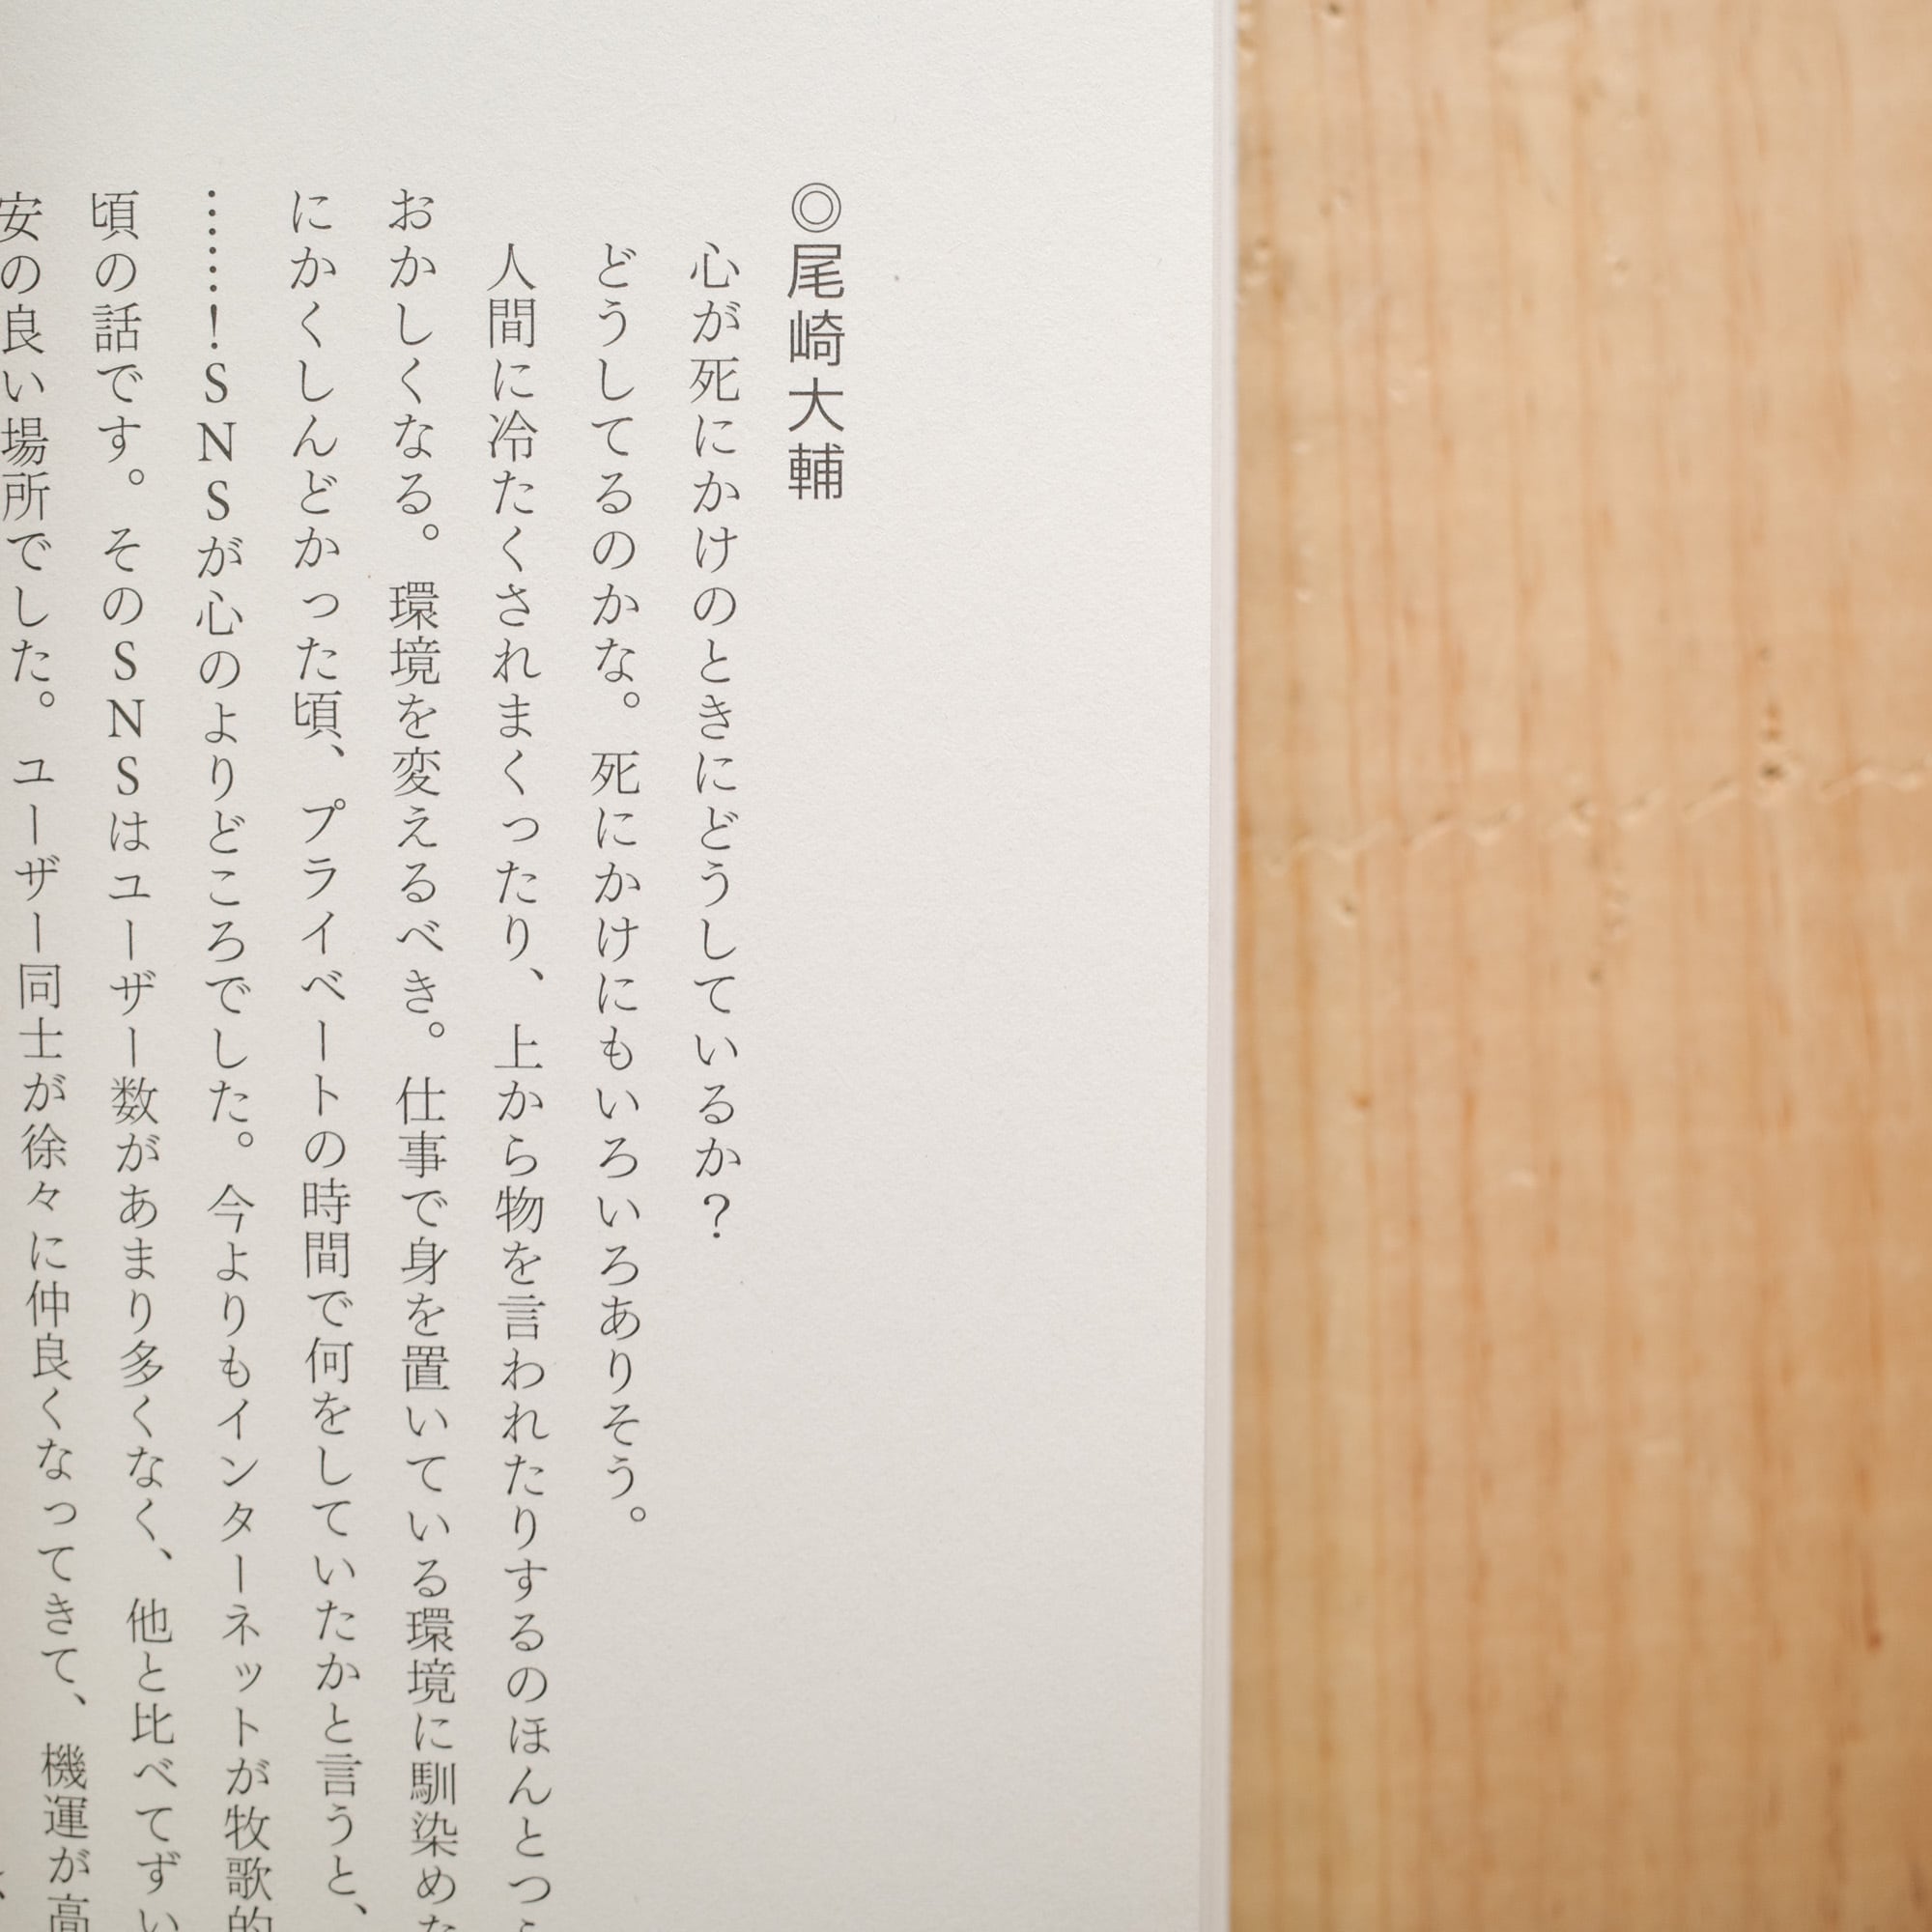 ◎尾崎大輔
心が死にかけのときにどうしているか？
どうしてるのかな。死にかけにもいろいろありそう。
人間に冷たくされまくったり、上から物を言われたりするのほんとつ
おかしくなる。環境を変えるべき。仕事で身を置いている環境に馴染めた
にかくしんどかった頃、プライベートの時間で何をしていたかと言うと、
……！SNSが心のよりどころでした。今よりもインターネットが牧歌的
頃の話です。そのSNSはユーザー数があまり多くなく、他と比べてずい
安の良い場所でした。ユーザー同士が徐々に仲良くなってきて、機運が高